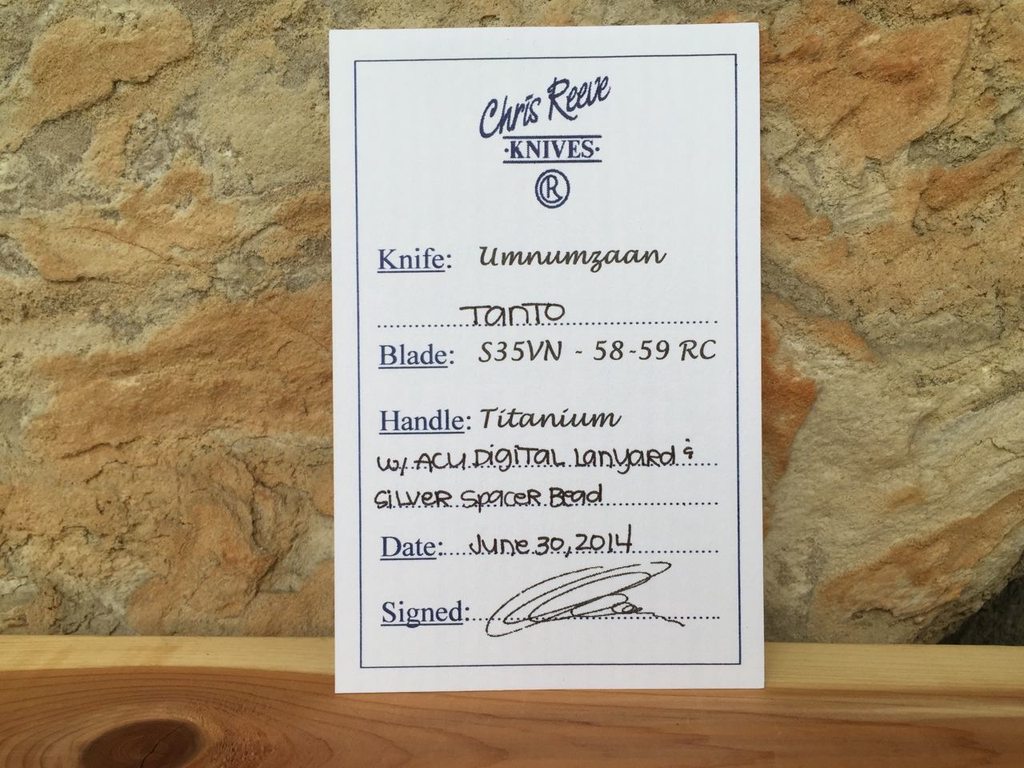 Chris Reeve
·KNIVES·
R
Knife: Umnumzaan
Tanto
Blade: S35VN - 58-59 RC
Handle: Titanium
w/ ACU Digital Lanyard &
Silver Spacer Bead
Date: June 30, 2014
Signed: